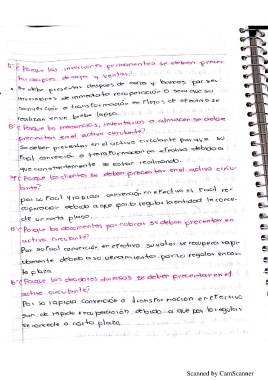 ¿Porque las inversiones permanentes se deben presen-
tar despues de caja y bancos?
Se debe presentar despues de caja y bancos por ser
inversiones de inmediata recuperación o sea que su
conversión o transformación en flujos de efectivo se
realizan en un breve lapso.
¿Porque las mercancias, inventarios o almacen se debe
presentar en el activo circulante?
Se deben presentar en el activo circulante porque su
facil conversión o transformación en efectivo debido a
que constantemente se estan realizando.
¿Porque los clientes se deben presentar en el activo circu-
lante?
por su facil y rapida conversión en efectivo es facil re-
cuperación debido a que por lo regular la entidad le conce-
de un corto plazo.
¿Porque los documentos por cobrar se deben presentar en
activo circulante?
Por su facil conversión en efectivo su valor se recupera rapi-
damente debido a su vencimiento, por lo regular en corto
plazo.
¿Porque los deudores diversos se deben presentar en el
activo circulante?
Por su rapida conversión o transformación en efectivo
son de rapida recuperación debido a que por lo regular
se concede a corto plazo.
Scanned by CamScanner